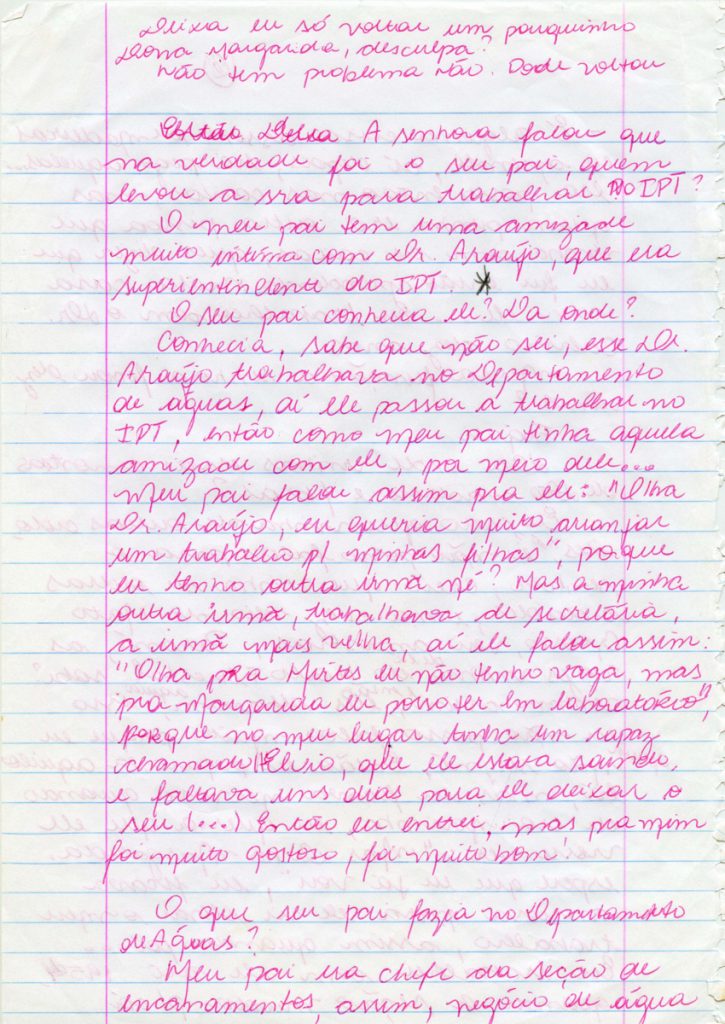 Deixa eu só voltar um pouquinho
Dona Margarida, desculpa?
Não tem problema não. Pode voltar
A senhora falou que
na verdade foi o seu pai, quem
levou a sra para trabalhar no IPT?
O meu pai tem uma amizade
muito íntima com Dr. Araújo, que era
superientindente do IPT. *
O seu pai conhecia ele? Da onde?
Conhecia, sabe que não sei, esse Dr.
Araújo trabalhava no Departamento
de águas, aí ele passou a trabalhar no
IPT, então como meu pai tinha aquela
amizade com ele, por meio dele...
Meu pai falou assim pra ele: "Olha
Dr. Araújo, eu queria muito arranjar
um trabalho p/ minhas filhas", porque
eu tenho outra irmã né? Mas a minha
outra irmã, trabalhava de secretária,
a irmã mais velha, aí ele falou assim:
"Olha pra Mirtes eu não tenho vaga, mas
pra Margarida eu posso ter em laboratório",
porque no meu lugar tinha um rapaz
chamado Elisio, que ele estava saindo,
e faltava uns dias para ele deixar o
seu (...) Então eu entrei, mas pra mim
foi muito gostoso, foi muito bom.
O que seu pai fazia no Departamento
de Águas?
Meu pai era chefe da seção de
encanamentos, assim, negócio de água